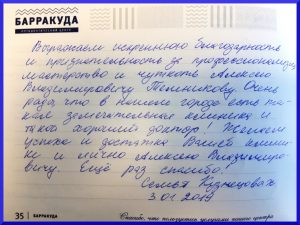 БАРРАКУДА
Выражаем искреннюю благодарность
и признательность за профессионализм,
мастерство и чуткость Алексею
Владимировичу Очень
рады, что в нашем городе есть та-
кая замечательная клиника и
такой хороший доктор! Желаем
успехов и достатка Вашей клини-
ке и лично Алексею Владимиро-
вичу. Ещё раз спасибо!
Семья Кузнецовых
3.01.2019
35 | БАРРАКУДА
Спасибо, что пользуетесь услугами нашего центра